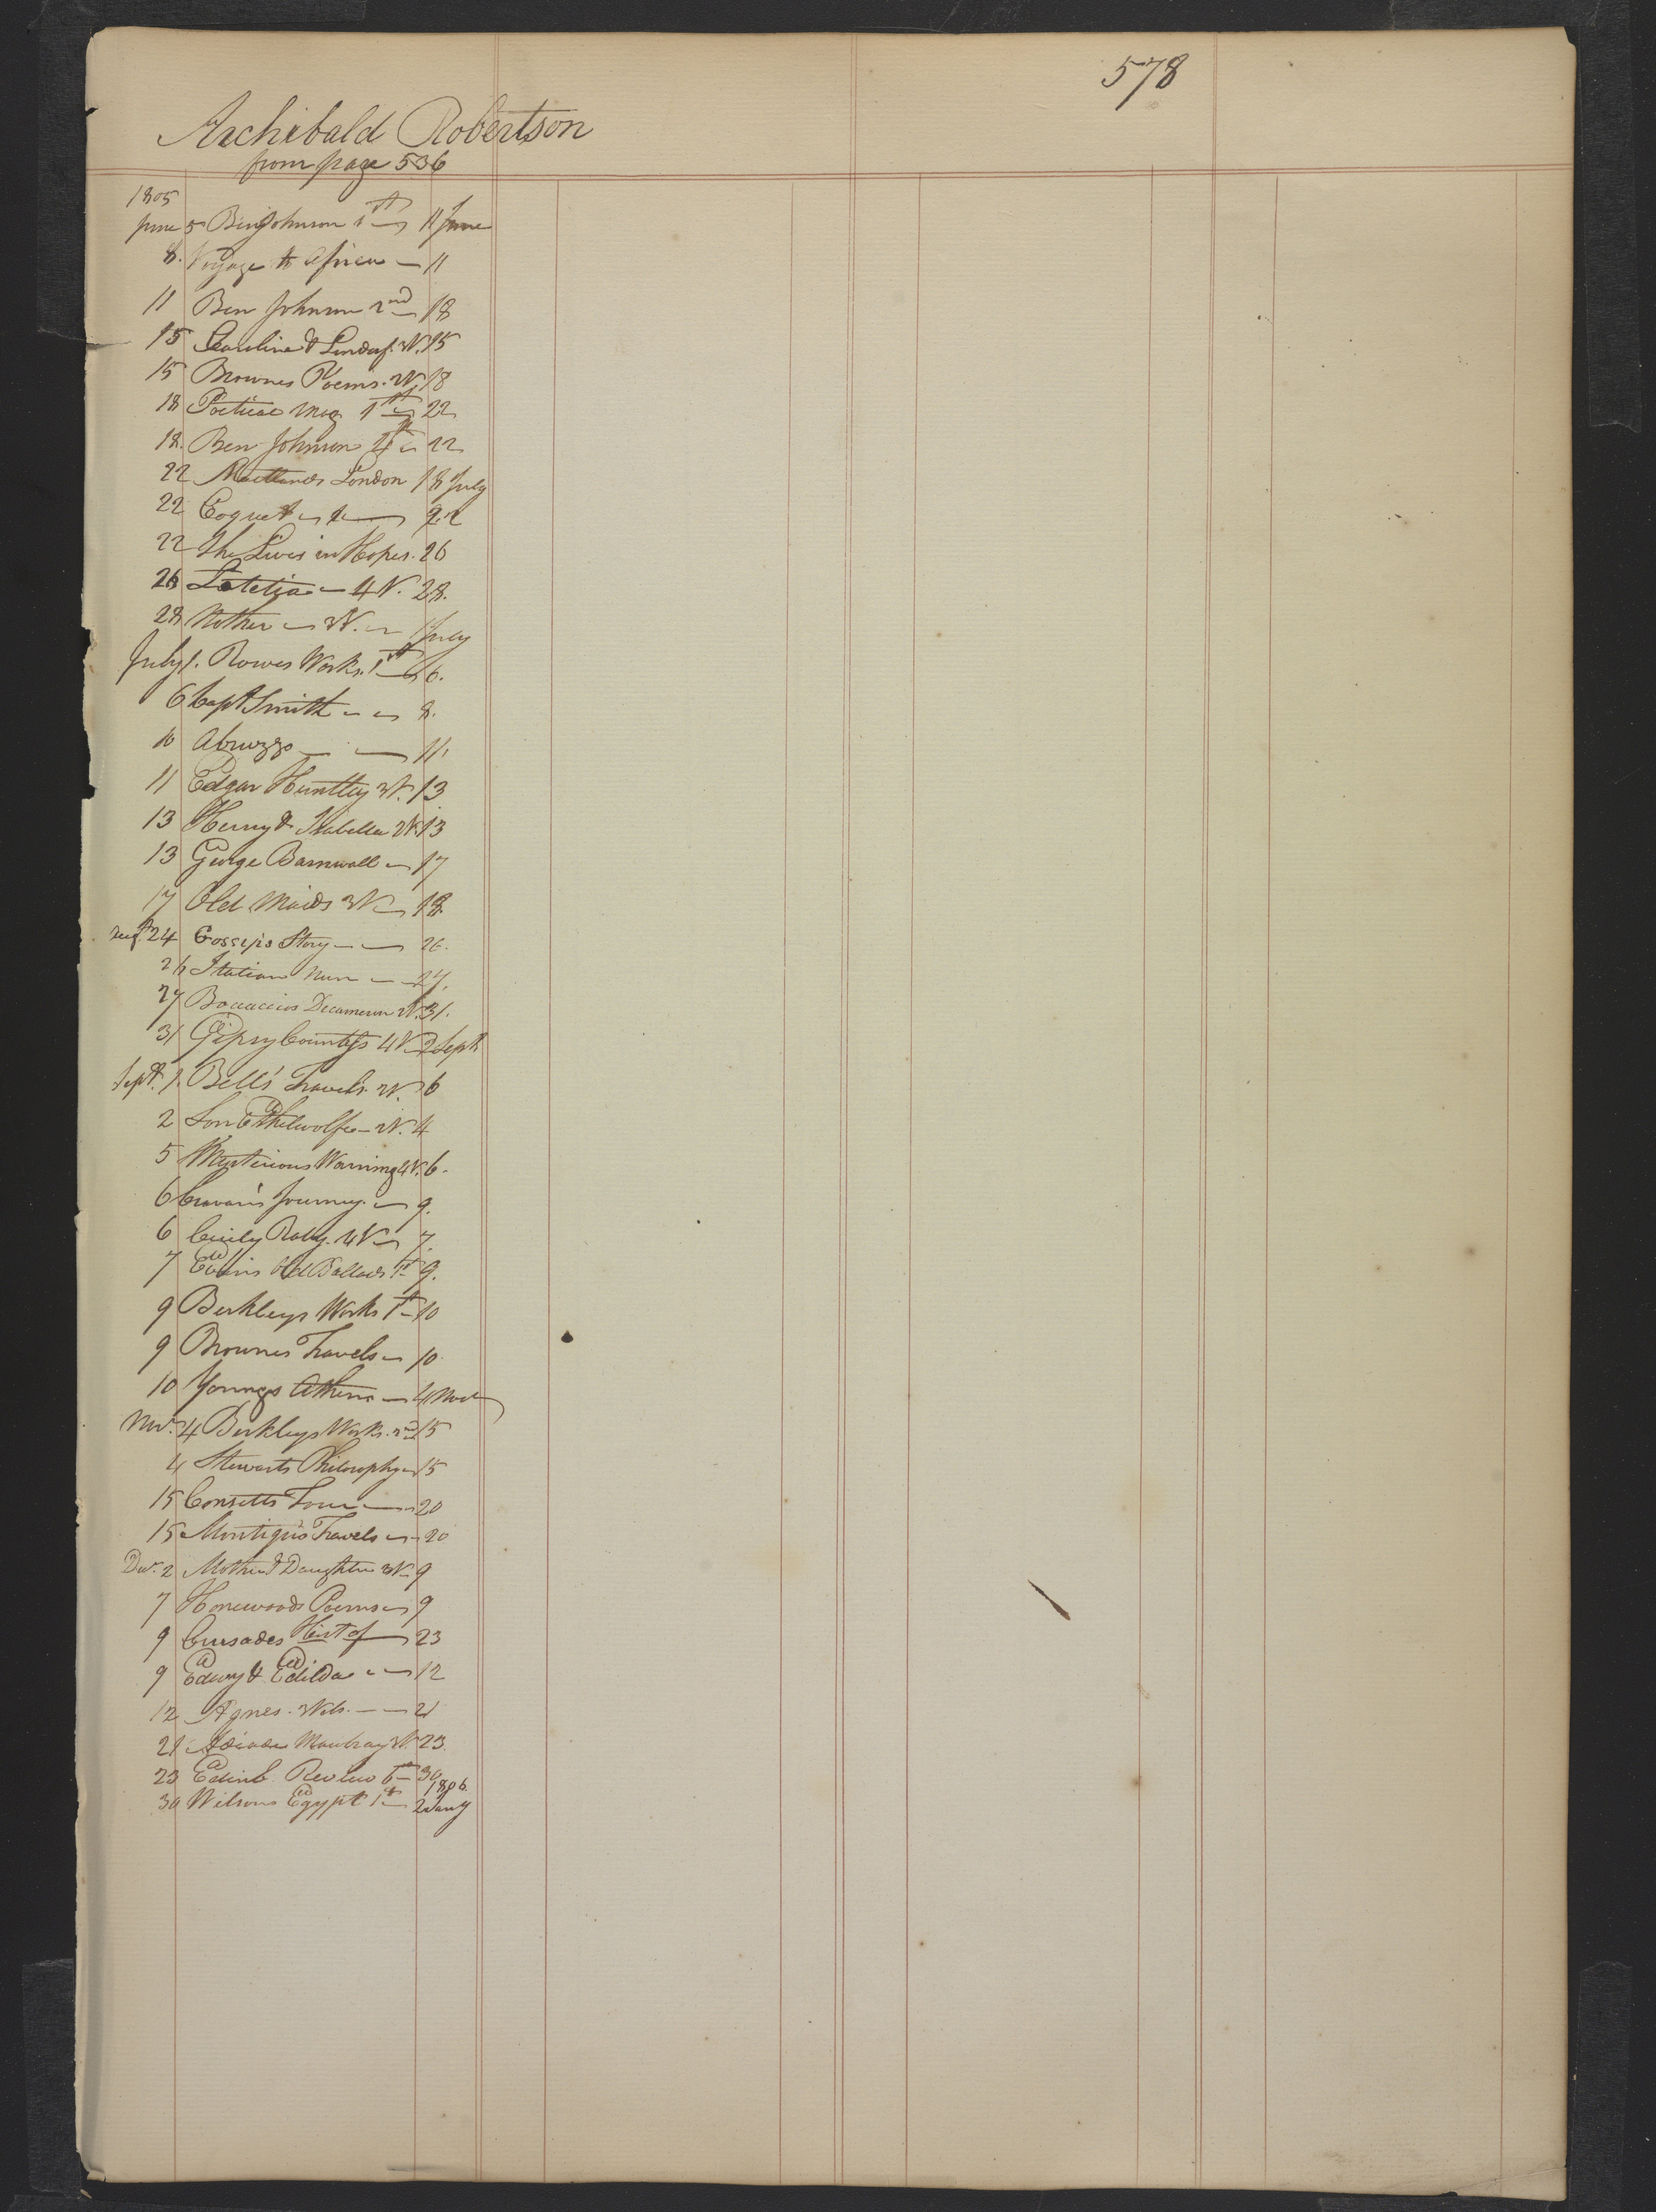 578
Archibald Robertson
from page 536
1805
June 5 Ben Johnson 1st 11 June
8. Voyage to Africa 11
11 Ben Johnson 2nd 18
15 Caroline & Lindorf. 3V. 15
15 Brownes Poems. 2V. 18
18 Poetical Mag 1st 22
18. Ben Johnson 4th 22
22 Maitlands London 18 July
22 Coquet 22
22 She Lives in Hopes. 26
26 Letetia 4 V. 28.
28 Mother 3V. 1 July
July 1. Rowes Works. 1st 6.
6 Capt Smith 8.
10 Abruzzo 11.
11 Edgar Huntley 3V. 13
13 Henry & Isabella 2V. 13
13 George Barnwall 17
17 Old Maids 3V 18
Aug. 24 Gossyis Story 26.
26 Italian Nun 27.
27 Bocaccios Decameron 2V. 31.
31 Gipsy Countess 4V 2 Sept
Sept. 1. Bell's Travels. 2V. 6
2 Son Ethelwolfe 2V. 4
5 Mysterious Warning 4V. 6.
6 Cravan's Journey. 9.
6 Cicily Raby. 4V 7.
7 Evans Old Ballads 1st 9.
9 Berkleys Works 1st 10
9 Brownes Travels 10.
10 Youngs Athens 4 Nov
Nov. 4 Berkleys Works. 2nd 15
4 Stewarts Philosophy 15
15 Consetts Tour 20
15 Montigni's Travels 20
Dec. 2 Mother & Daughter 3V. 9
7 Honewoods Poems 9
9 Cursades Hist of 23
9 Edwy & Edilda 12
12 Agnes. 3Vols. 21
21 Adiade Mowbray 3V. 23.
23 Edinb Review 6th 30
1806
30 Wilsons Egypt 1st 2 Jany